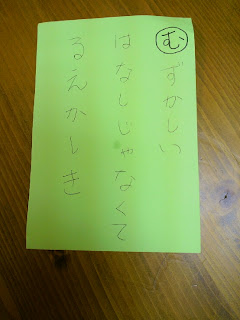 むずかしい
はなしじゃなくて
るえかしき